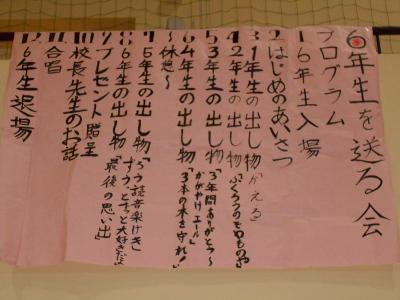 6年生を送る会
プログラム
1 6年生入場
2 はじめのあいさつ
3 1年生の出し物「かえる」
4 2年生の出し物「ふくろうのそめものや」
5 3年生の出し物「3年間ありがとう〜
かがやけエール」
6 4年生の出し物「3本の木を守れ!」
〜休憩〜
7 5年生の出し物「ろう読音楽げき
ずうっとずっと大好きだよ」
8 6年生の出し物「最後の思い出」
9 プレゼント贈呈
10 校長先生のお話
11 合唱
12 6年生退場